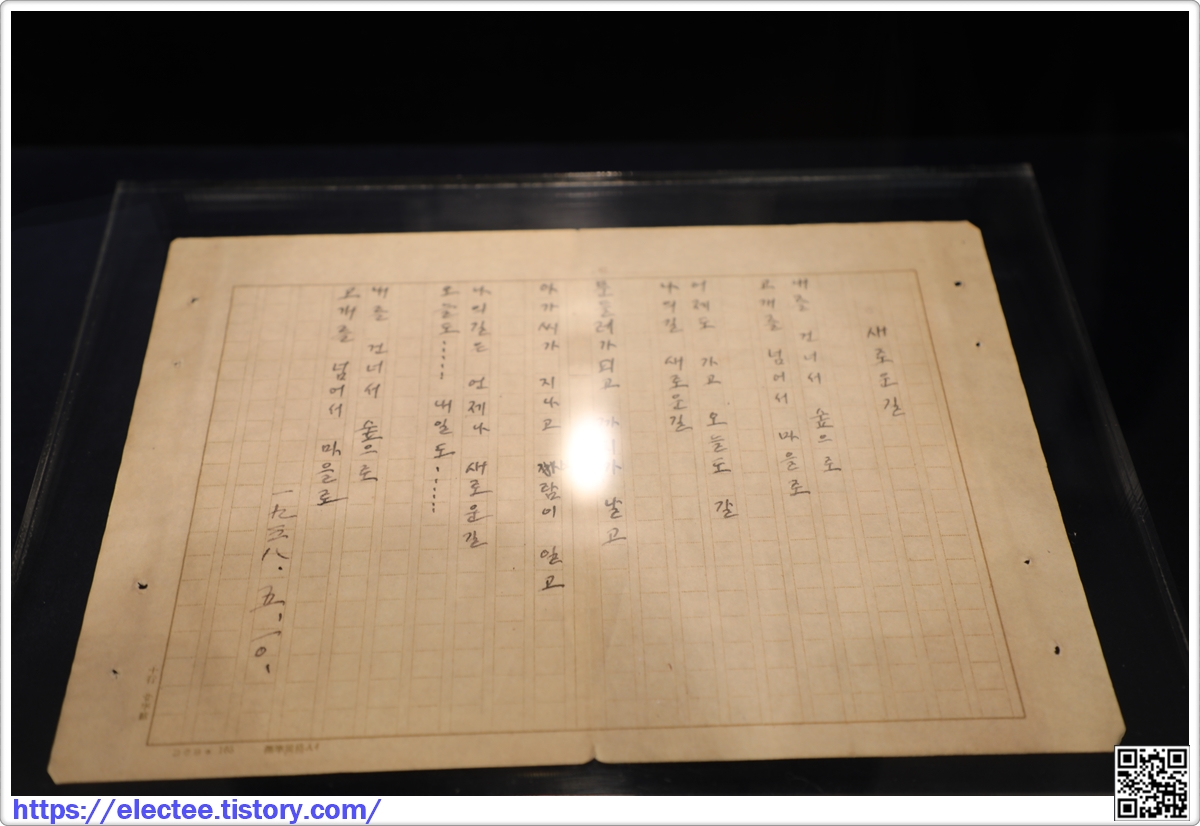 새로운길
내를 건너서 숲으로
고개를 넘어서 마을로
어제도 가고 오늘도 갈
나의길 새로운길
문들레가피고 까치가 날고
아가씨가 지나고 바람이 일고
나의길은 언제나 새로운길
오늘도…… 내일도……
내를 건너서 숲으로
고개를 넘어서 마을로
一九三八. 五. 一〇.
https://electee.tistory.com/